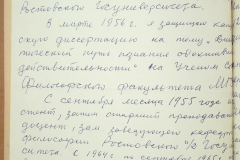 Ростовского Госуниверситета.
В марте 1956 г. я защищал кан
скую диссертацию на тему „
тический путь познания объективн
действительности" на Ученом Сов
Философского факультета МГ
С сентября месяца 1955 года
стент, затем старший преподава
доцент, зам. заведующего кафедр
философии Ростовского Гос
ситета с 1964 г. по сентябрь 1965 г.